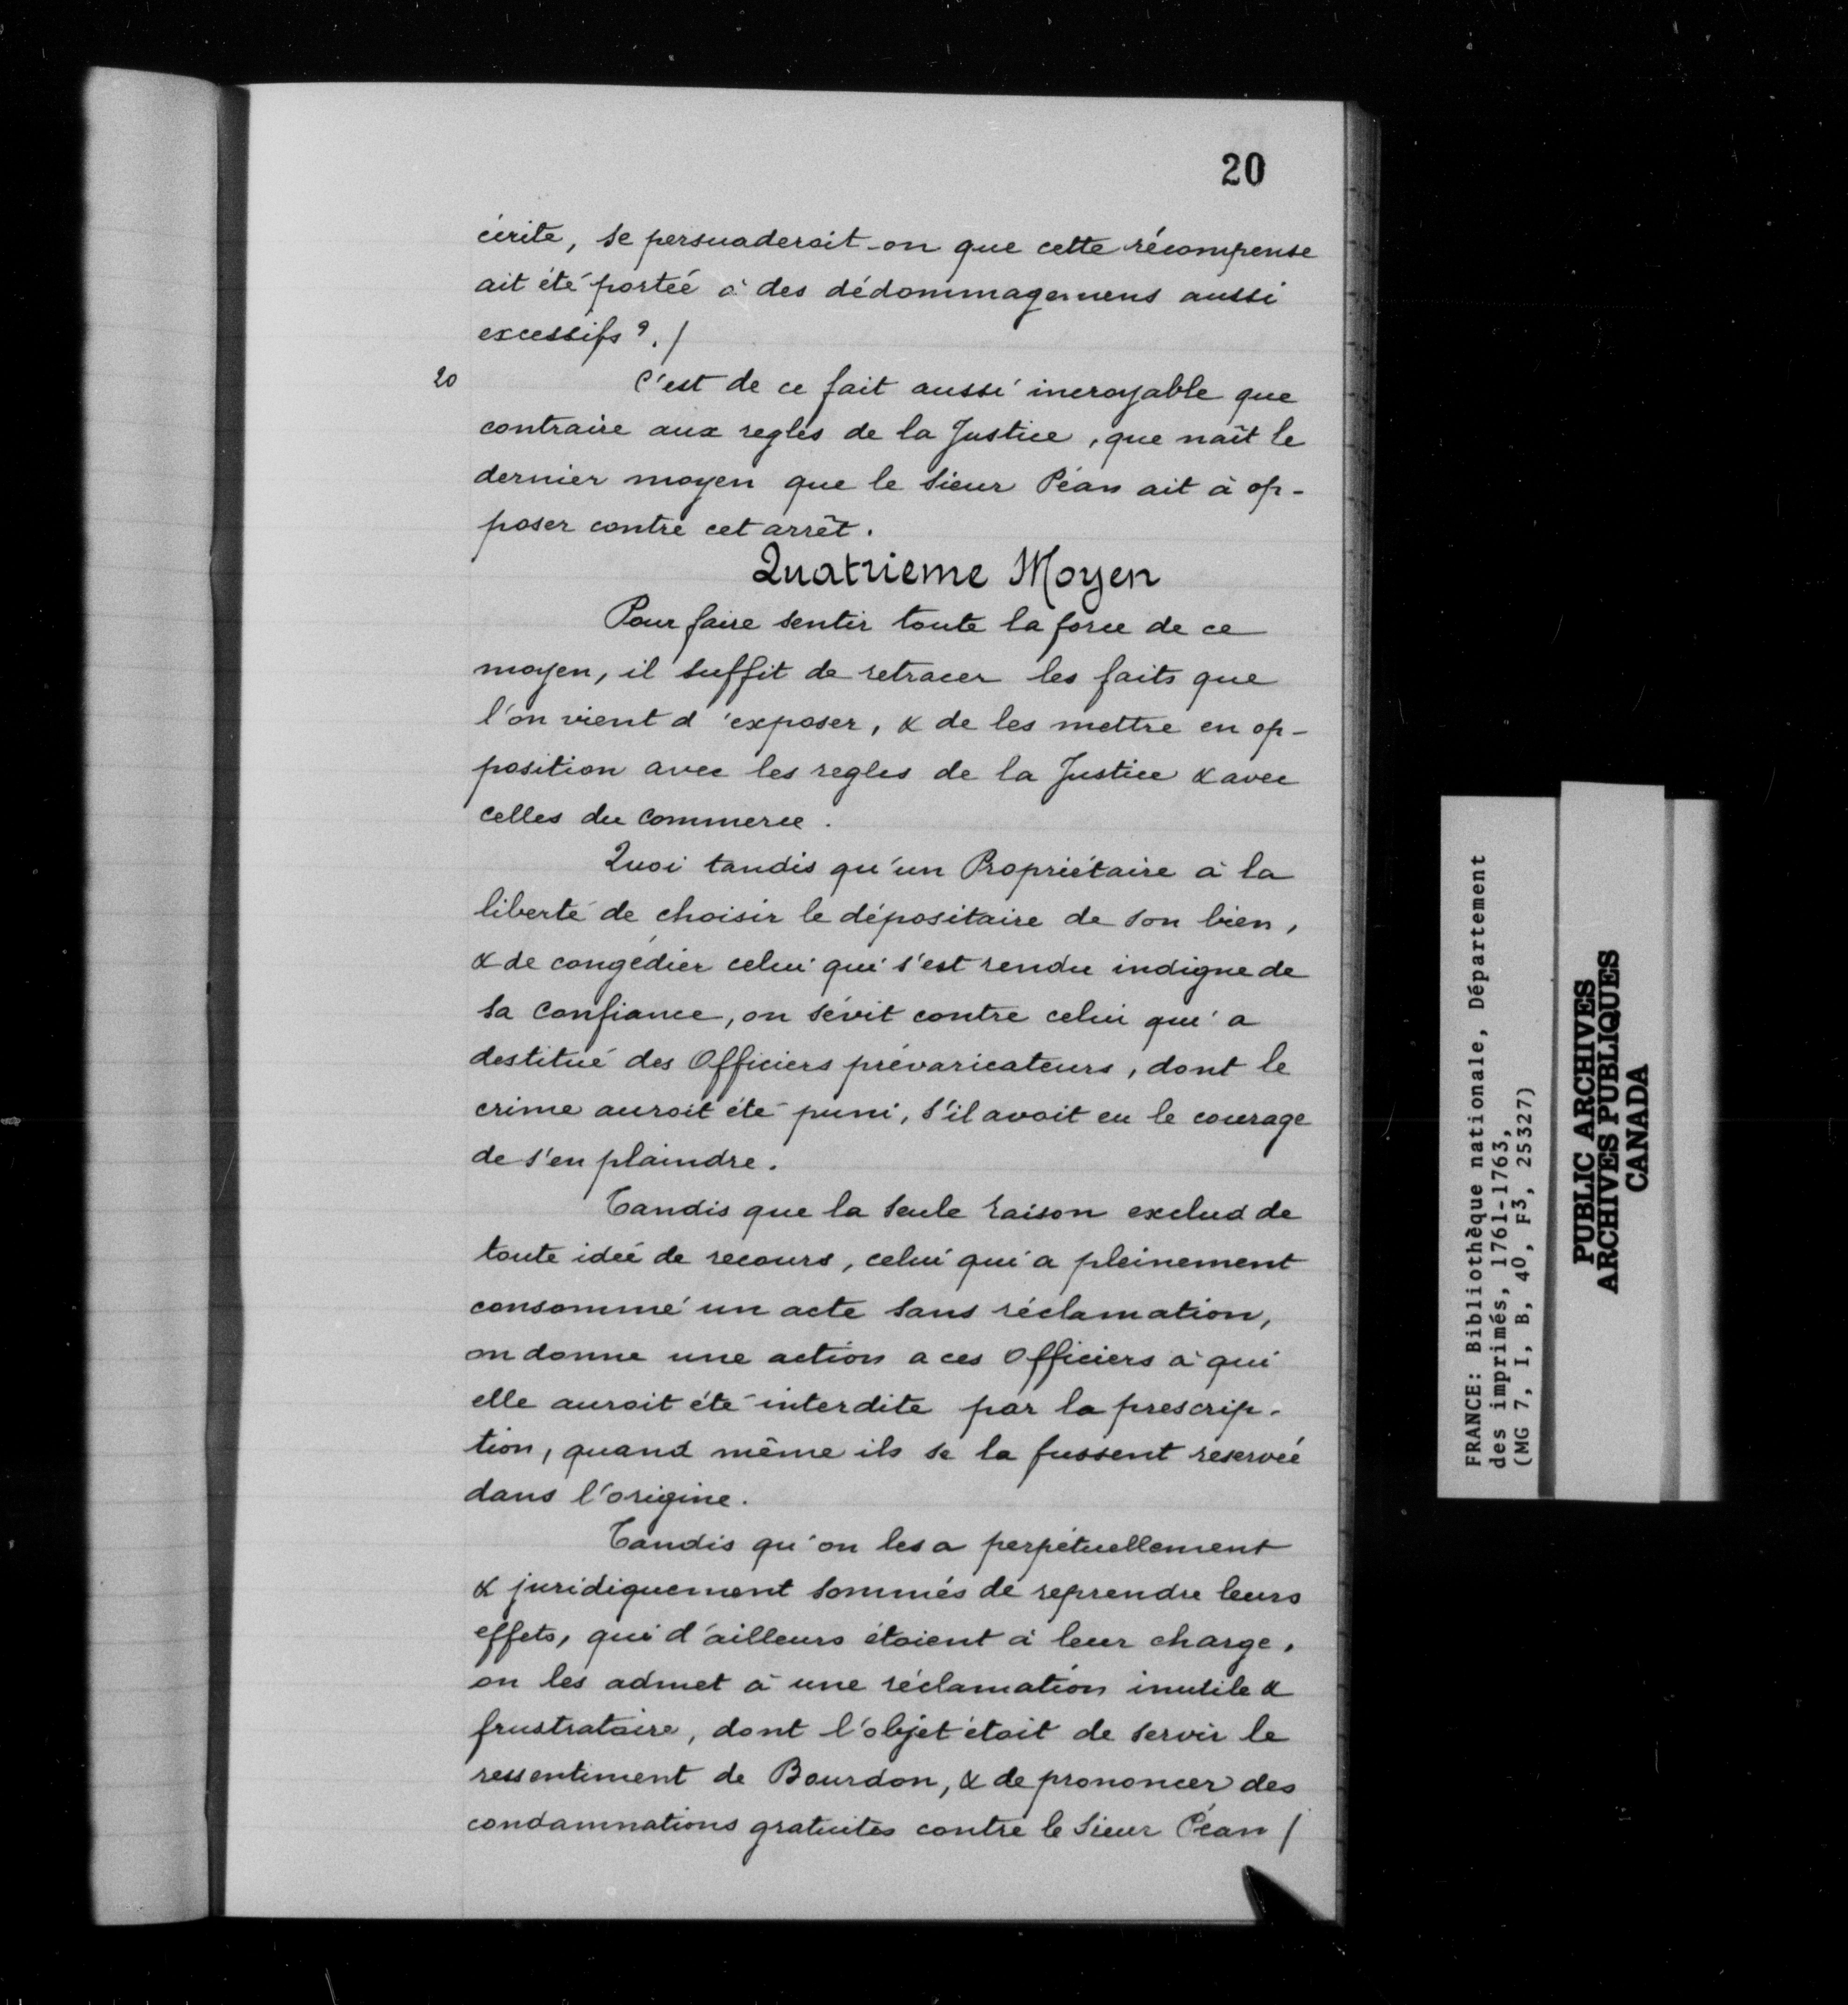 20
cérité, se persuaderoit-on que cette récompense
ait été portée à des dédommagemens aussi
excessifs?./
20 C'est de ce fait aussi incroyable que
contraire aux regles de la Justice, que naît le
dernier moyen que le Sieur Péan ait à op-
poser contre cet arrêt.
Quatrieme Moyen
Pour faire sentir toute la force de ce
moyen, il suffit de retracer les faits que
l'on vient d'exposer, & de les mettre en op-
position avec les regles de la Justice & avec
celles du commerce.
Quoi tandis qu'un Propriétaire à la
liberté de choisir le dépositaire de son bien,
& de congédier celui qui s'est rendu indigne de
sa Confiance, on sévit contre celui qui a
destitué des Officiers prévaricateurs, dont le
crime auroit été puni, s'il avoit eu le courage
de s'en plaindre.
Tandis que la seule raison exclud de
toute idée de recours, celui qui a pleinement
consommé un acte sans réclamation,
on donne une action a ces Officiers à qui
elle auroit été interdite par la prescrip-
tion, quand même ils se la fussent réservée
dans l'origine.
Tandis qu'on les a perpétuellement
& juridiquement sommés de reprendre leurs
effets, qui d'ailleurs étoient à leur charge,
on les admet à une réclamation inutile &
frustratoire, dont l'objet étoit de servir le
ressentiment de Bourdon, & de prononcer des
condamnations gratuites contre le Sieur Péan /
FRANCE: Bibliothèque nationale, Département
des imprimés, 1761-1763,
(MG 7, I, B, 40, F3, 25327)
PUBLIC ARCHIVES
ARCHIVES PUBLIQUES
CANADA